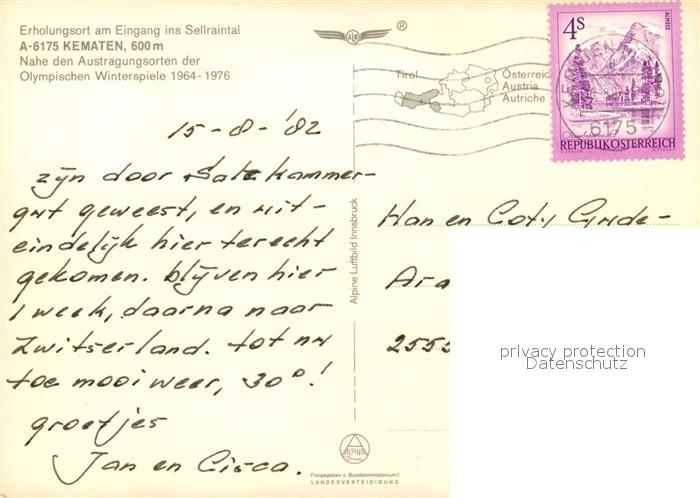 Erholungsort am Eingang ins Sellraintal
A-6175 KEMATEN, 600 m
Nahe den Austragungsorten der
Olympischen Winterspiele 1964 - 1976
ALM
®
Tirol
Österreich
Austria
Autriche
4S
ALMSEE
REPUBLIK ÖSTERREICH
KEMATEN
6175
15-8-'82
zijn door Salzkammer-
gut geweest, en uit-
eindelijk hier terecht
gekomen. blijven hier
1 week, daarna naar
Zwitserland. tot nu
toe mooi weer, 30°!
groetjes
Jan en Cisca.
Alpine Luftbild Innsbruck
ALPINA
Druck
Freigegeben v. Bundesministerium f.
LANDESVERTEIDIGUNG
Han en Coty
Ara
2555
privacy protection
Datenschutz